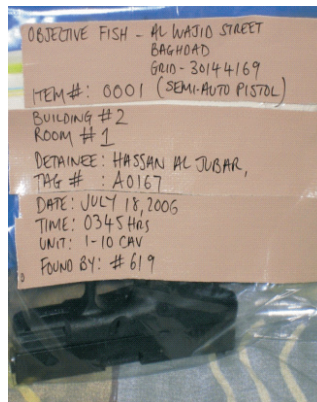 OBJECTIVE FISH - AL WAJID STREET
BAGHDAD
GRID - 30144169
ITEM #: 0001 (SEMI-AUTO PISTOL)
BUILDING #2
ROOM #1
DETAINEE: HASSAN AL JUBAR,
TAG # : A0167
DATE: JULY 18, 2006
TIME: 0345 HRS
UNIT: 1-10 CAV
FOUND BY: #619